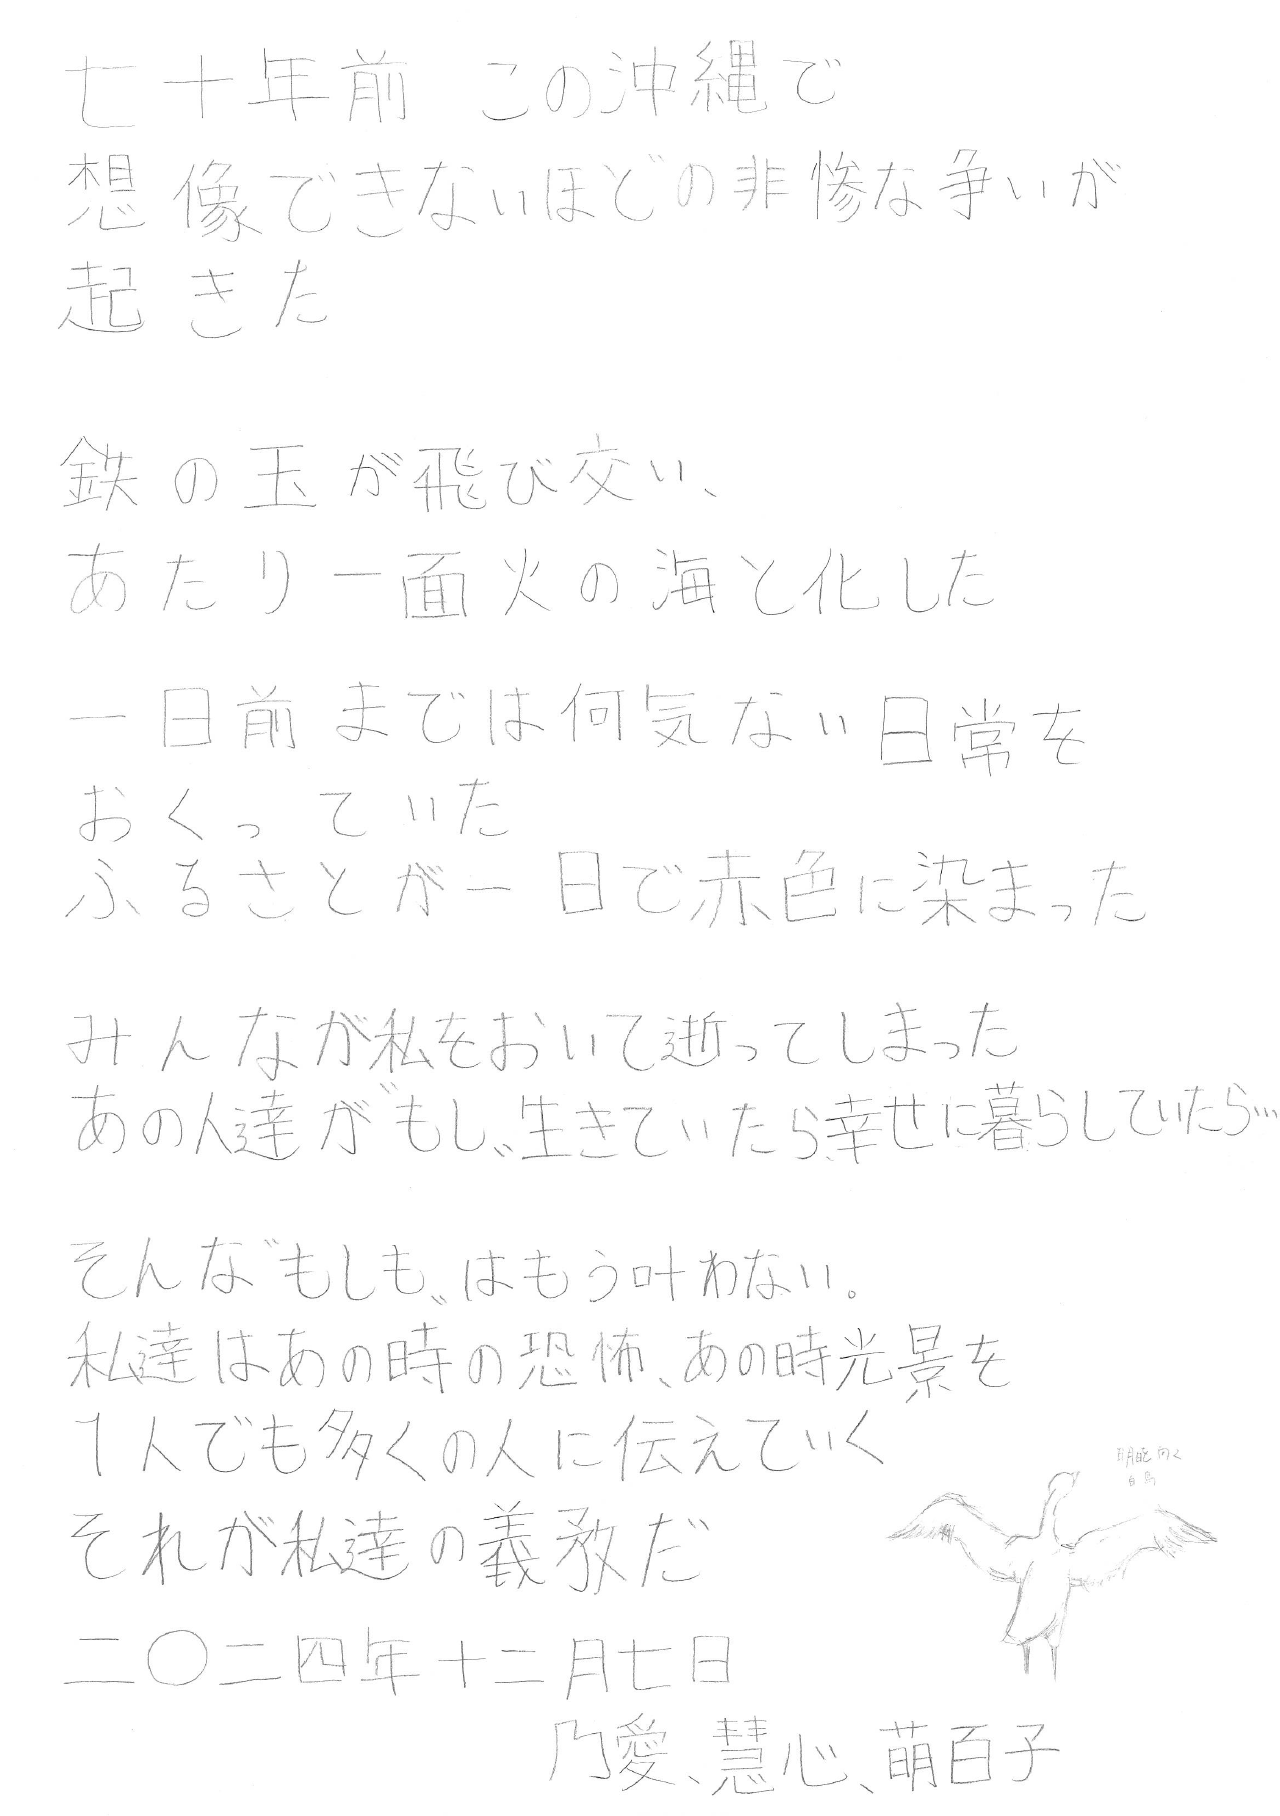 七十年前 この沖縄で
想像できないほどの非惨な争いが
起きた
鉄の玉が飛び交い、
あたり一面火の海と化した
一日前までは何気ない日常を
おくっていた
ふるさとが一日で赤色に染まった
みんなが私をおいて逝ってしまった
あの人達が〝もし〟生きていたら、幸せに暮らしていたら…
そんな〝もしも〟はもう叶わない。
私達はあの時の恐怖、あの時光景を
1人でも多くの人に伝えていく
それが私達の義務だ
二〇二四年十二月七日
乃愛、慧心、萌百子
向く
白鳥